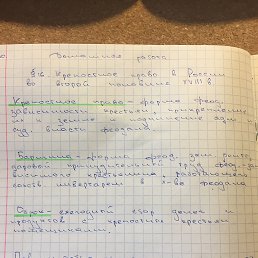 Домашняя работа
§16 Крепостное право в России
во второй половине XVIII в.
Крепостное право - форма феод.
зависимости крестьян, прикрепление
их к земле и подчинение адм. и
суд. власти феодала.
Барщина - форма феод. зем. ренты,
даровой принудительный труд
зависимого крестьянина, работающего
собств. инвентарём в х-во феодала
Оброк - ежегодный сбор денег и
продуктов с крепостных крестьян
помещиками.